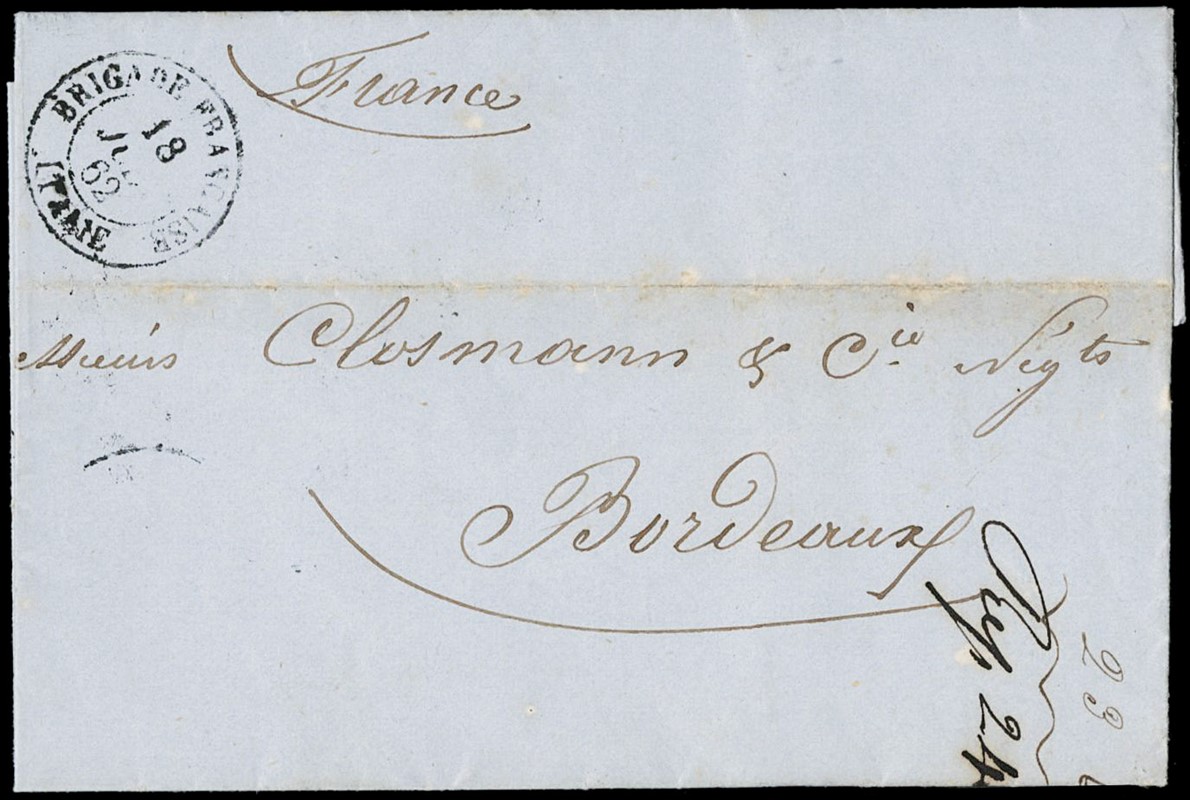 BRIGADE FRANÇAISE
18
62
ITALIE
France
Messieurs Closmann & Cie Negts
Bordeaux
Rep 24
23